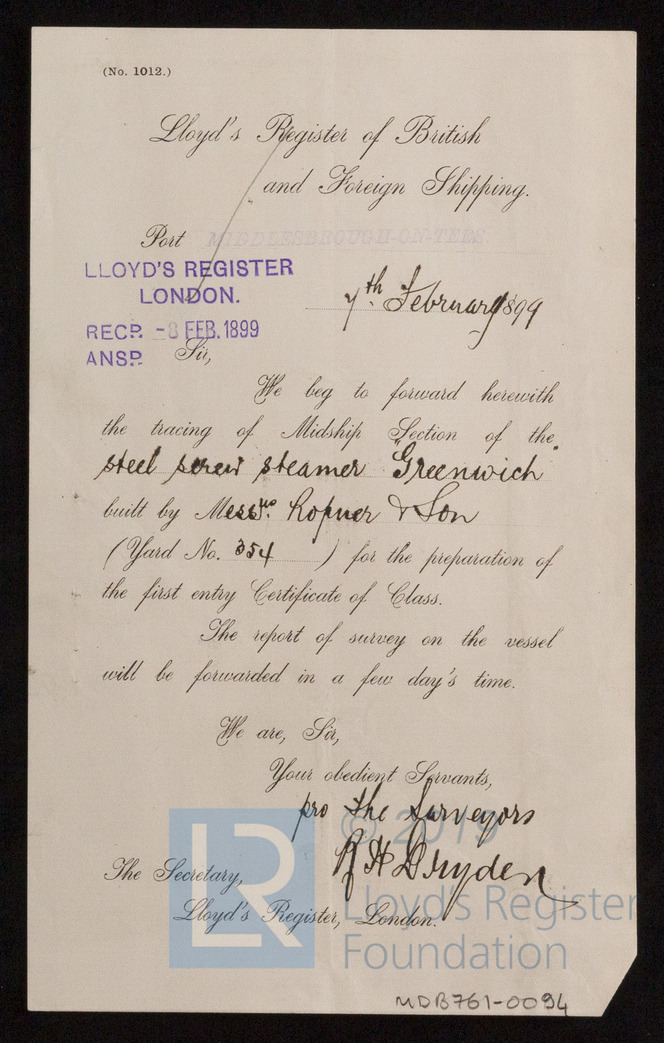 (No. 1012.)
Lloyd's Register of British
and Foreign Shipping.
Port MIDDLESBROUGH-ON-TEES.
LLOYD'S REGISTER
LONDON.
7th. February 1899
RECD. -8 FEB. 1899
ANSD.
Sir,
We beg to forward herewith
the tracing of Midship Section of the
steel screw steamer "Greenwich"
built by Messrs. Ropner & Son
(Yard No. 354 ) for the preparation of
the first entry Certificate of Class.
The report of survey on the vessel
will be forwarded in a few day's time.
We are, Sir,
Your obedient Servants,
pro the Surveyors
R H Dryden
The Secretary,
Lloyd's Register, London.
© 2019
LR
Lloyd's Register
Foundation
MDB761-0094